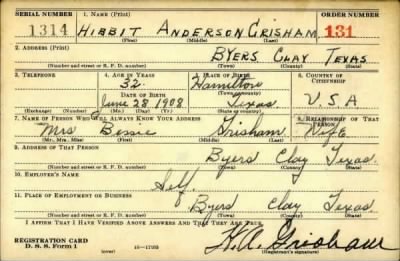 SERIAL NUMBER 1. NAME (Print) ORDER NUMBER
1314 HIBBIT ANDERSON GRISHAM 131
(First) (Middle) (Last)
2. ADDRESS (Print)
BYERS CLAY TEXAS
(Number and street or R. F. D. number) (Town) (County) (State)
3. TELEPHONE 4. AGE IN YEARS 5. PLACE OF BIRTH 6. COUNTRY OF CITIZENSHIP
32 Hamilton
DATE OF BIRTH (Town or county)
June 28 1908 Texas U.S.A
(Exchange) (Number) (Mo.) (Day) (Yr.) (State or country)
7. NAME OF PERSON WHO WILL ALWAYS KNOW YOUR ADDRESS 8. RELATIONSHIP OF THAT PERSON
Mrs Bessie Grisham Wife
(Mr., Mrs., Miss) (First) (Middle) (Last)
9. ADDRESS OF THAT PERSON
Byers Clay Texas.
(Number and street or R. F. D. number) (Town) (County) (State)
10. EMPLOYER'S NAME
Self.
11. PLACE OF EMPLOYMENT OR BUSINESS
Byers Clay Texas.
(Number and street or R. F. D. number) (Town) (County) (State)
I AFFIRM THAT I HAVE VERIFIED ABOVE ANSWERS AND THAT THEY ARE TRUE.
REGISTRATION CARD
D. S. S. Form 1 (over) 16—17105 H.A. Grisham
(Registrant's signature)